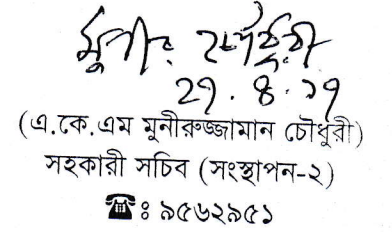 মুনীর চৌধুরী
২৭.৪.১৭
(এ.কে.এম মুনীরুজ্জামান চৌধুরী)
সহকারী সচিব (সংস্থাপন-২)
☎ঃ ৯৫৬২৯৫১